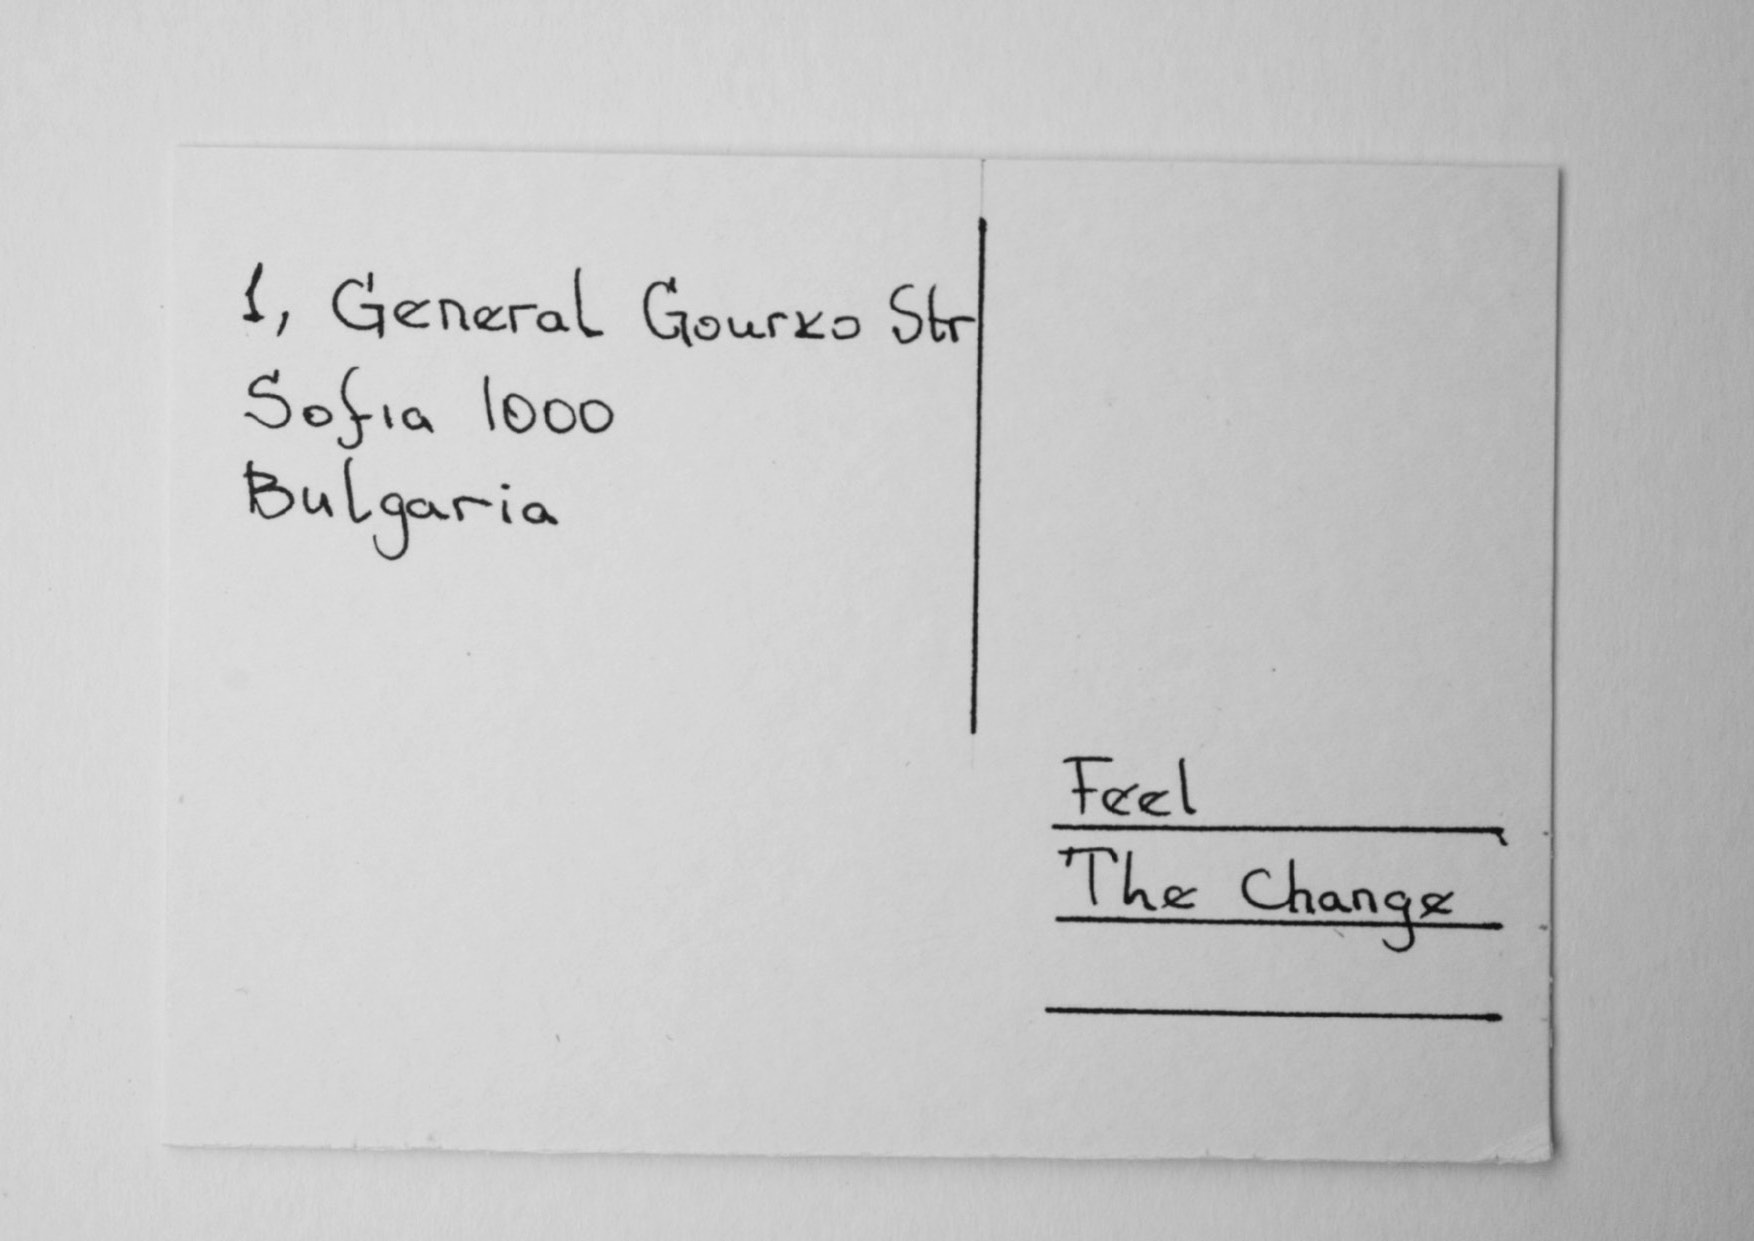 1, General Gourko Str
Sofia 1000
Bulgaria
Feel
The Change